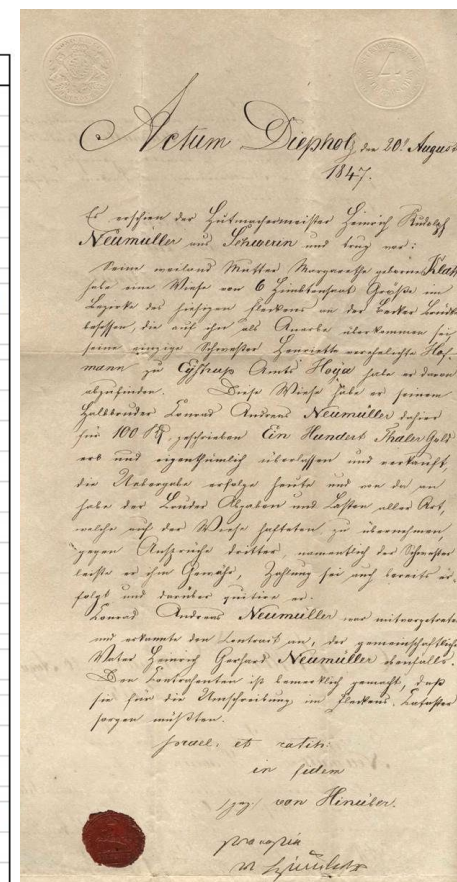 Actum Diepholz den 20t August
1847.
Es erschien der Hutmachermeister Heinrich Rudolph
Neumüller aus Schwerin und trug vor:
Seine weiland Mutter Margarethe geborne Klatte
habe eine Wiese von 6 Himbtensaat Größe im
Bezirke des hiesigen Fleckens an der
besessen, die auf ihn als Anerbe überkommen sei,
seine einzige Schwester Henriette verehelichte Hof-
mann zu Eystrup Amts Hoya habe er davon
abzufinden. Diese Wiese habe er seinem
Halbbruder Conrad Andreas Neumüller dahier
für 100 geschrieben Ein Hundert Thaler Gold
erb und eigenthümlich überlassen und verkauft,
die Uebergabe erfolge heute und von da an
habe der Bruder Abgaben und Lasten aller Art,
welche auf der Wiese hafteten zu übernehmen,
gegen Ansprüche dritter, namentlich der Schwester
leiste er ihm Gewähr, Zahlung sei auch bereits er-
folgt und darüber quitire er.
Conrad Andreas Neumüller war mitvorgetreten
und erkannte den Contract an, der gemeinschaftliche
Vater Heinrich Gerhard Neumüller ebenfalls.
Den Contrahenten ist bemerklich gemacht, daß
sie für die Umschreibung im Fleckens-Cataster
sorgen müßten.
prael. et ratih.
in fidem
gez. von Hinüber.
pro copia